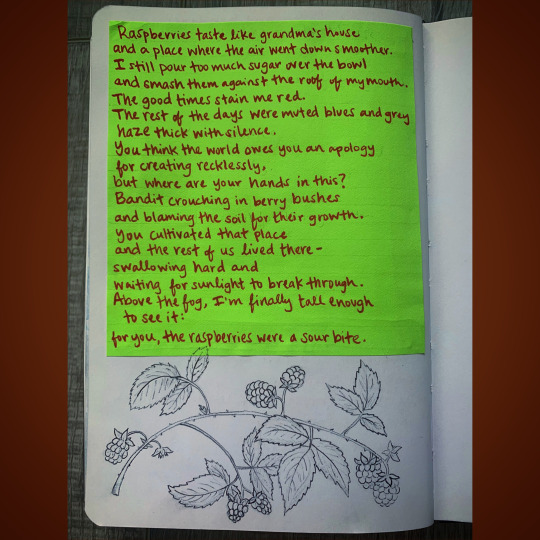 Raspberries taste like grandma's house
and a place where the air went down smoother.
I still pour too much sugar over the bowl
and smash them against the roof of my mouth.
The good times stain me red.
The rest of the days were muted blues and grey
haze thick with silence.
You think the world owes you an apology
for creating recklessly,
but where are your hands in this?
Bandit crouching in berry bushes
and blaming the soil for their growth.
You cultivated that place
and the rest of us lived there-
swallowing hard and
waiting for sunlight to break through.
Above the fog, I'm finally tall enough
to see it:
for you, the raspberries were a sour bite.